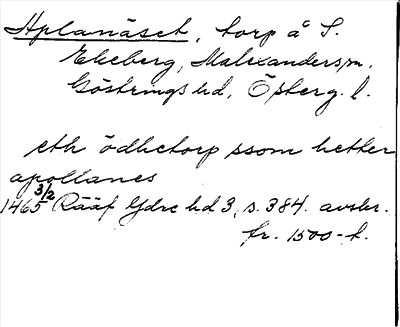 Aplanäset, torp å S.
Ekeberg, Malexanders sn.
Göstrings hd, Österg. l.
eth ödhetorp ssom hetter
apollanes
1465 3/2 Rääf Ydre hd 3, s. 384. avskr.
fr. 1500-t.